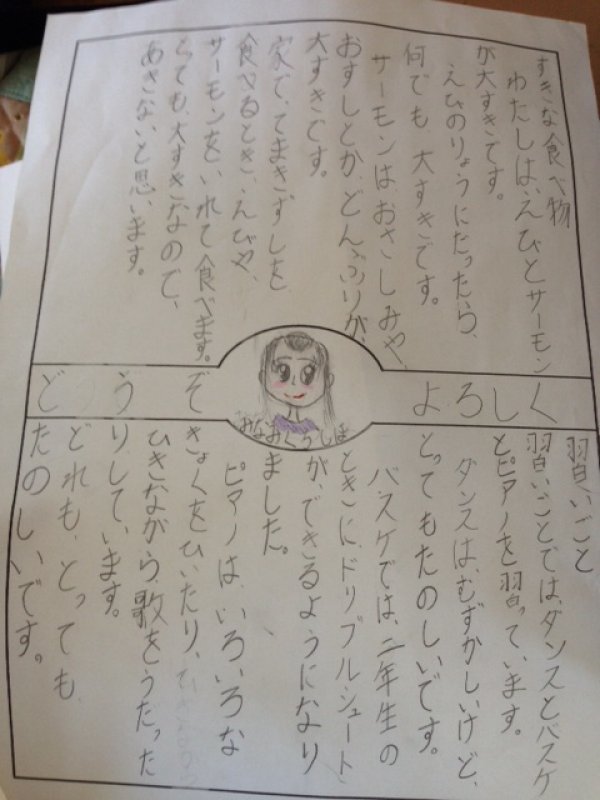 すきな食べ物
わたしは、えびとサーモン
が大すきです。
えびのりょうにたったら、
何でも、大すきです。
サーモンは、おさしみや、
おすしとか、どんぶりが、
大すきです。
家で、てまきずしを
食べるとき、えびや、
サーモンをいれて食べます。
とても、大すきなので、
あきないと思います。
どうぞ
よろしく
習いごと
習いごとでは、ダンスとバスケ
とピアノを習っています。
ダンスは、むずかしいけど、
とってもたのしいです。
バスケでは、二年生の
ときに、ドリブルシュート
が、できるようになり
ました。
ピアノは、いろいろな
きょくをひいたり、
ひきながら、歌をうだった
りしています。
どれも、とっても、
たのしいです。